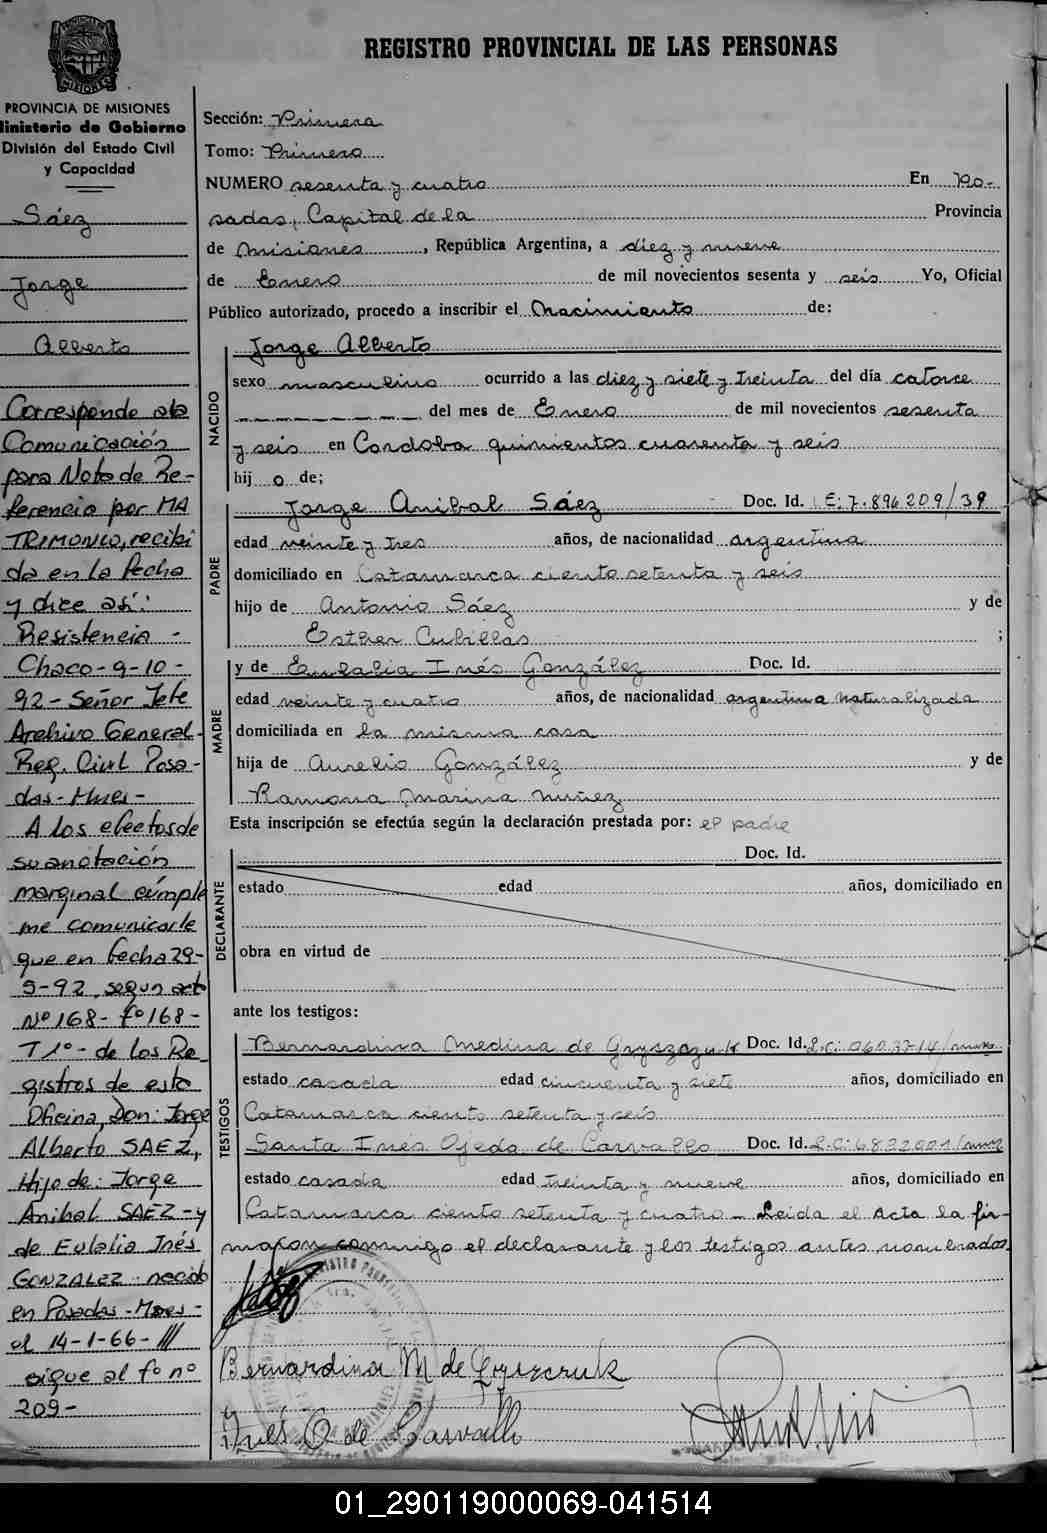 REGISTRO PROVINCIAL DE LAS PERSONAS
PROVINCIA DE MISIONES
Ministerio de Gobierno
División del Estado Civil
y Capacidad
Sáez
Jorge
Alberto
Corresponde a la
Comunicación
para Nota de Re-
ferencia por MA
TRIMONIO, recibi
da en la fecha
y dice así:
Resistencia -
Chaco-9-10-
92- Señor Jefe
Archivo General-
Reg. Civil Posa-
das-Mnes-
A los efectos de
su anotación
marginal cúmple
me comunicarle
que en fecha 29-
9-92, segun acta
Nº 168- fº 168-
T 1º- de los Re-
gistros de esta
Oficina, Don: Jorge
Alberto SAEZ,
Hijo de: Jorge
Anibal SAEZ-y
de Eulalia Inés
GONZALEZ-nacido
en Posadas-Mnes-
el 14-1-66-///
sigue al fº nº
209-
Sección: Primera
Tomo: Primero
NUMERO sesenta y cuatro En Po-
sadas, Capital de la Provincia
de Misiones, República Argentina, a diez y nueve
de Enero de mil novecientos sesenta y seis Yo, Oficial
Público autorizado, procedo a inscribir el Nacimiento de:
NACIDO
Jorge Alberto
sexo masculino ocurrido a las diez y siete y treinta del día catorce
del mes de Enero de mil novecientos sesenta
y seis en Cordoba quinientos cuarenta y seis
hijo de;
PADRE
Jorge Anibal Sáez Doc. Id. L.E: 7.896209/39
edad veinte y tres años, de nacionalidad argentina
domiciliado en Catamarca ciento setenta y seis
hijo de Antonio Sáez y de
Esther Cubillas ;
MADRE
y de Eulalia Inés González Doc. Id.
edad veinte y cuatro años, de nacionalidad argentina naturalizada
domiciliada en la misma casa
hija de Aurelio González y de
Ramona Marina Nuñez
Esta inscripción se efectúa según la declaración prestada por: el padre
DECLARANTE
Doc. Id.
estado edad años, domiciliado en
obra en virtud de
ante los testigos:
TESTIGOS
Bernardina Medina de Gryszczuk Doc. Id. L.C:
estado casada edad cincuenta y siete años, domiciliado en
Catamarca ciento setenta y seis
Santa Inés Ojeda de Carvallo Doc. Id. L.C: 6822001/
estado casada edad treinta y nueve años, domiciliado en
Catamarca ciento setenta y cuatro - Leida el Acta la fir-
maron conmigo el declarante y los testigos antes nombrados.
Bernardina M de Gryszczuk
Inés O de Carvallo
01_290119000069-041514